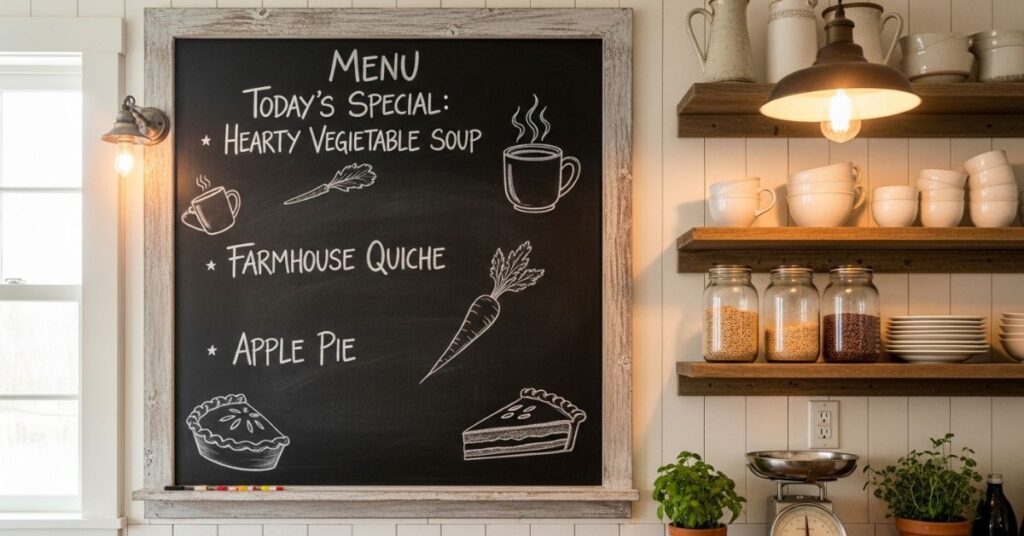 MENU
TODAY'S SPECIAL:
★ HEARTY VEGIETABLE SOUP
★ FARMHOUSE QUICHE
★ APPLE PIE